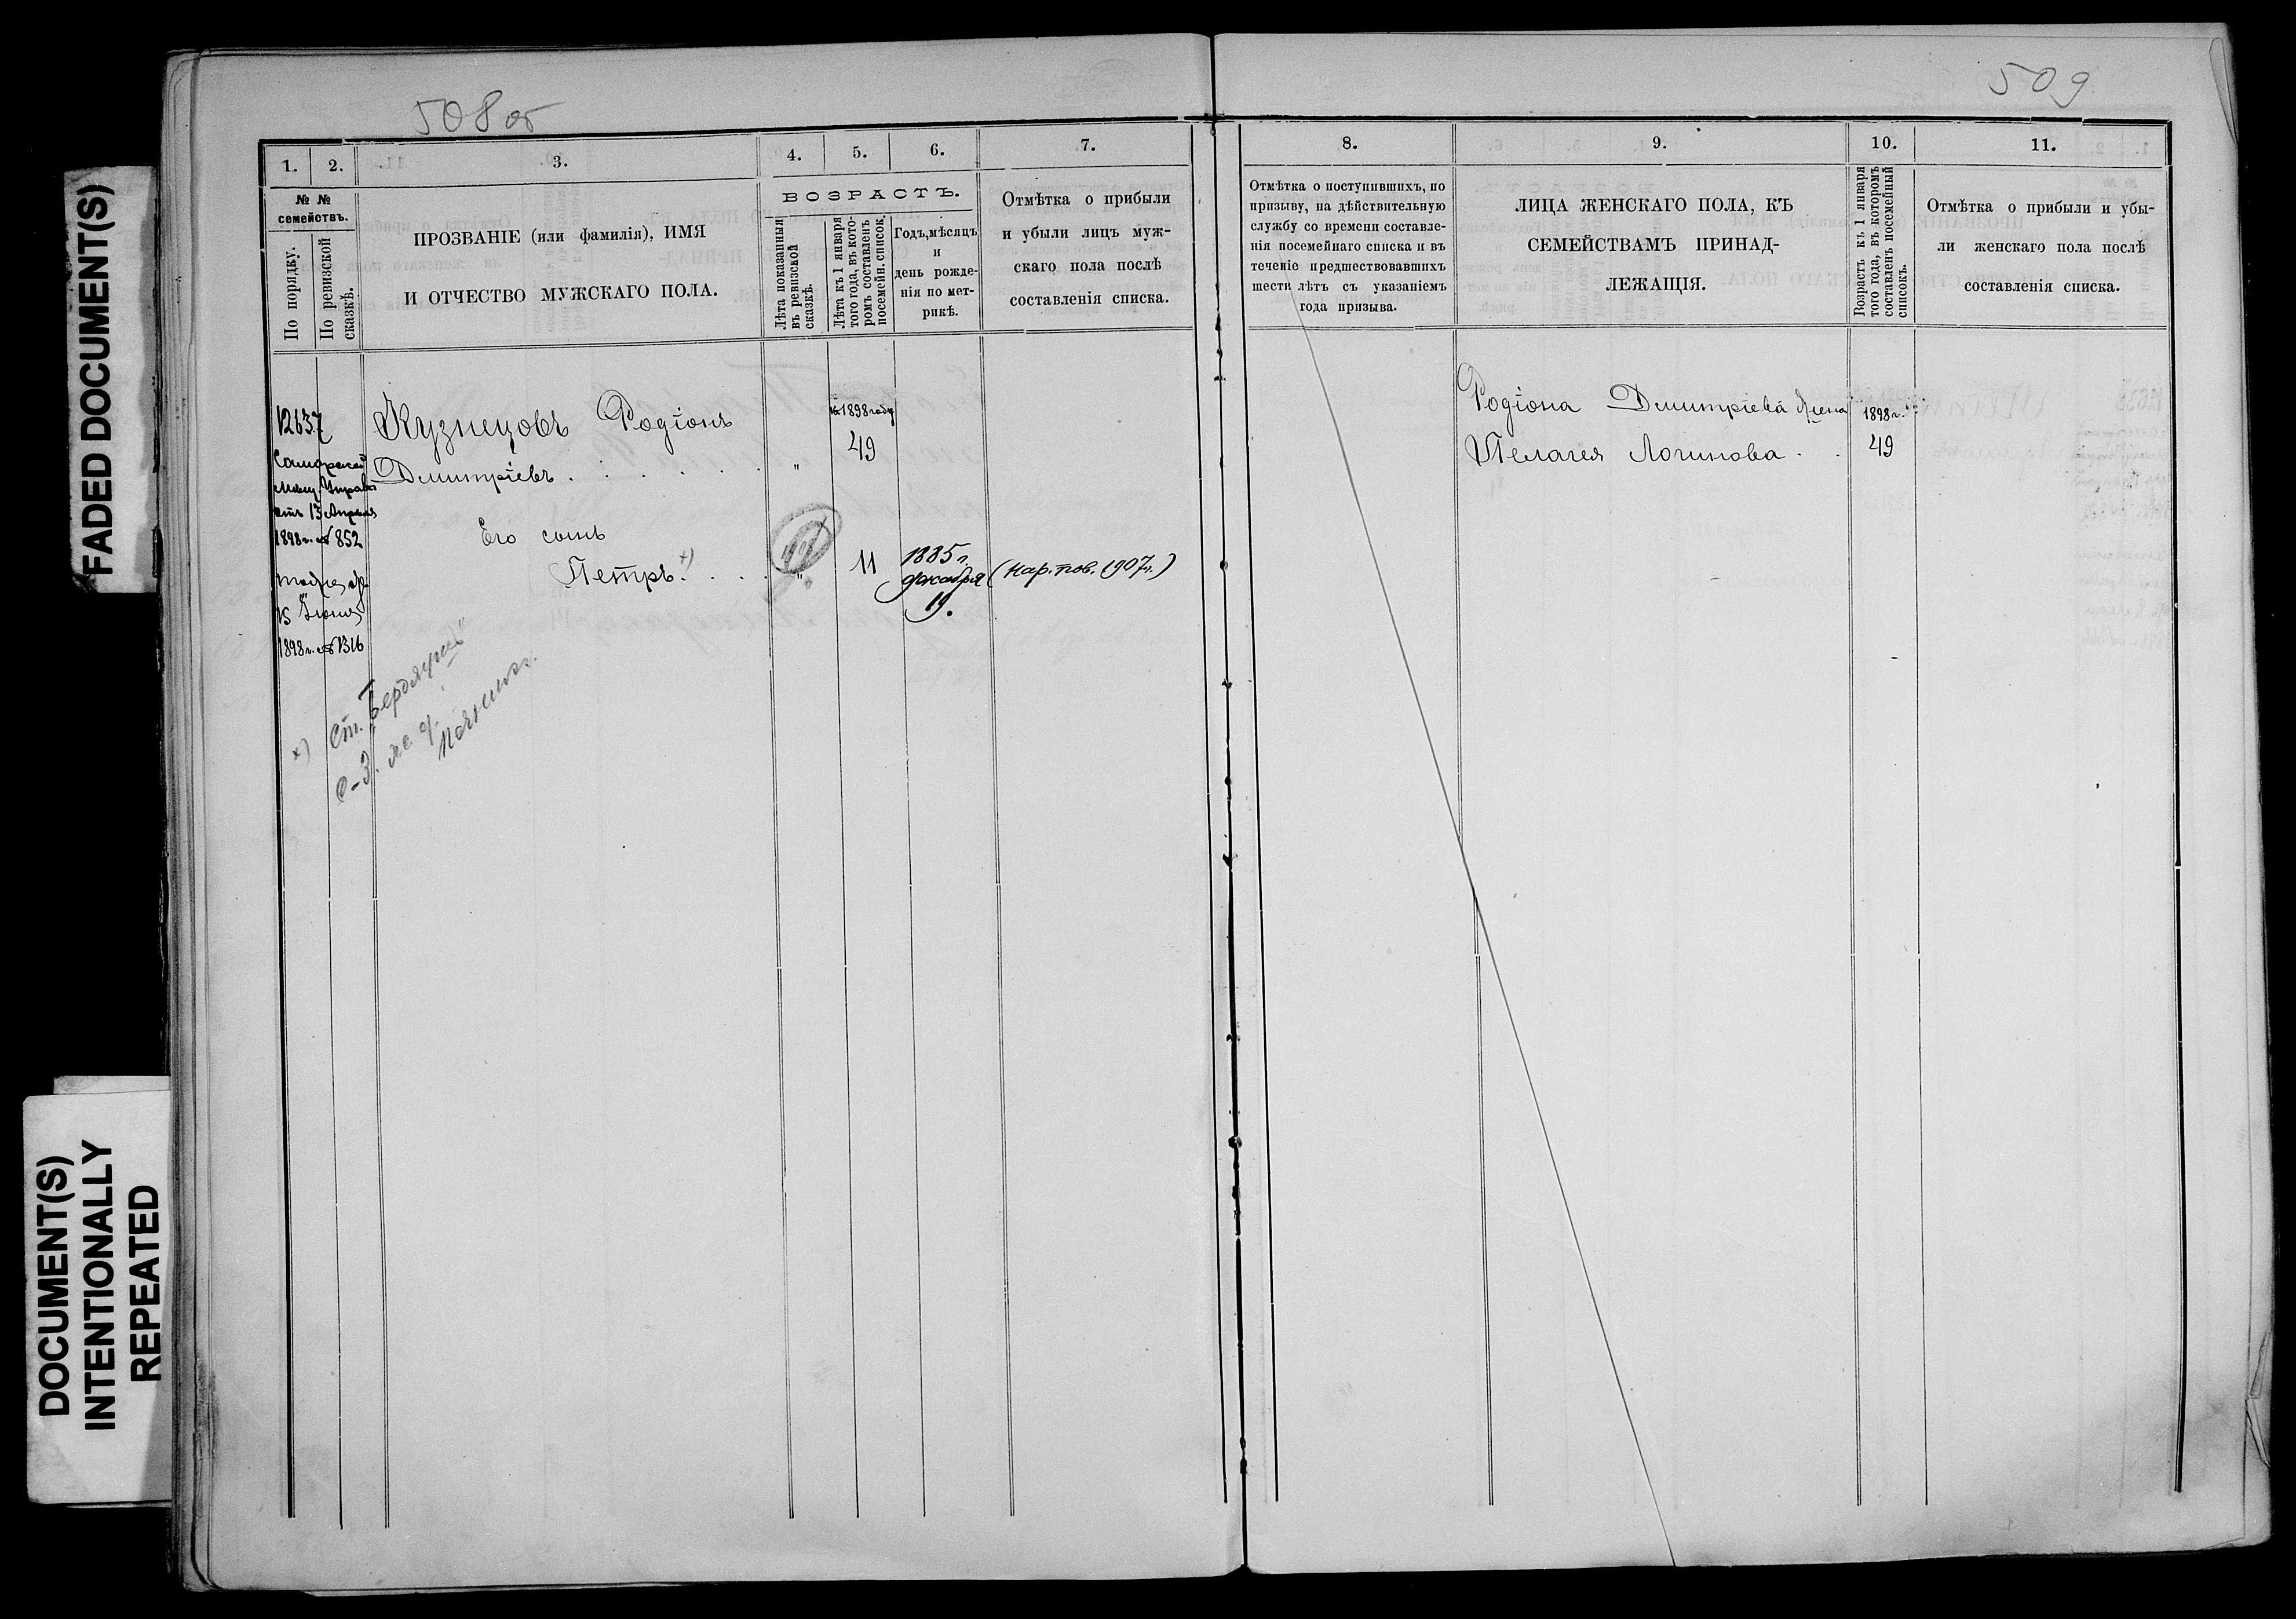 FADED DOCUMENT(S)
DOCUMENT(S)
INTENTIONALLY
REPEATED
508 об
1.
2.
3.
4.
5.
6.
7.
№ №
семействъ.
По порядку.
По ревизской
сказкѣ.
ПРОЗВАНІЕ (или фамилія), ИМЯ
И ОТЧЕСТВО МУЖСКАГО ПОЛА.
ВОЗРАСТЪ.
Лѣта показанныя
въ ревизской
сказкѣ.
Лѣта къ 1 января
того года, въ кото-
ромъ составленъ
посемейн. список.
Годъ, мѣсяцъ
и
день рожде-
нія по мет-
рикѣ.
Отмѣтка о прибыли
и убыли лицъ муж-
скаго пола послѣ
составленія списка.
12637
Самарской
Мѣщ. Управы
отъ 13 Апрѣля
1898 г. № 852
15 Іюня
1898 г. № 1316
Кузнецовъ Родіонъ
Дмитріевъ . . . . . "
въ 1898 году
49
Его сынъ
Петръ x) . . . "
11
1885 г.
декабря
19.
(Нар. пов. 1907 г.)
x) Ст. Бердяушъ
509
8.
9.
10.
11.
Отмѣтка о поступившихъ, по
призыву, на дѣйствительную
службу со времени составле-
нія посемейнаго списка и въ
теченіе предшествовавшихъ
шести лѣтъ съ указаніемъ
года призыва.
ЛИЦА ЖЕНСКАГО ПОЛА, КЪ
СЕМЕЙСТВАМЪ ПРИНАД-
ЛЕЖАЩІЯ.
Возрастъ къ 1 января
того года, въ которомъ
составленъ посемейный
списокъ.
Отмѣтка о прибыли и убы-
ли женскаго пола послѣ
составленія списка.
Родіона Дмитріева жена
Пелагея Логинова . .
1898 г.
49